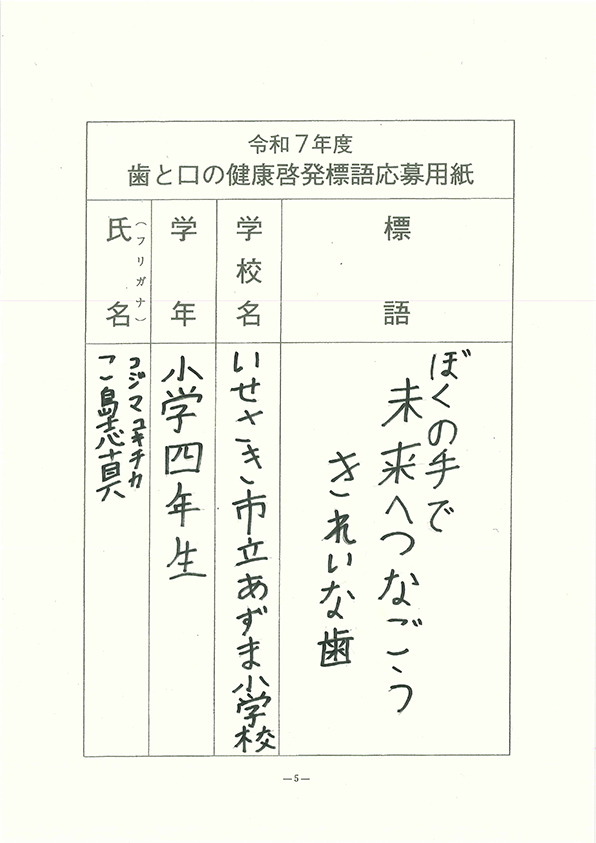 令和7年度
歯と口の健康啓発標語応募用紙
標語
ぼくの手で
未来へつなごう
きれいな歯
学校名
いせさき市立あずま小学校
学年
小学四年生
氏名
(フリガナ)
コジマユキチカ
こ島志真
—5—